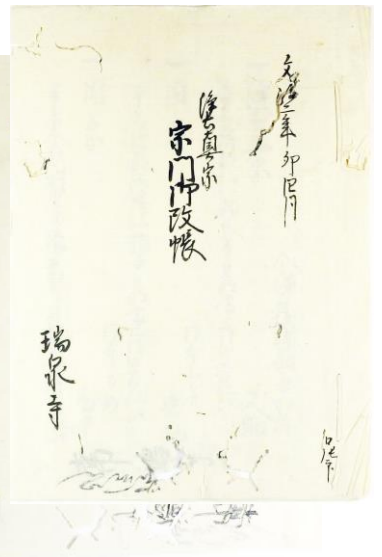 文政二年卯四月
浄土真宗
宗門御改帳
瑞泉寺